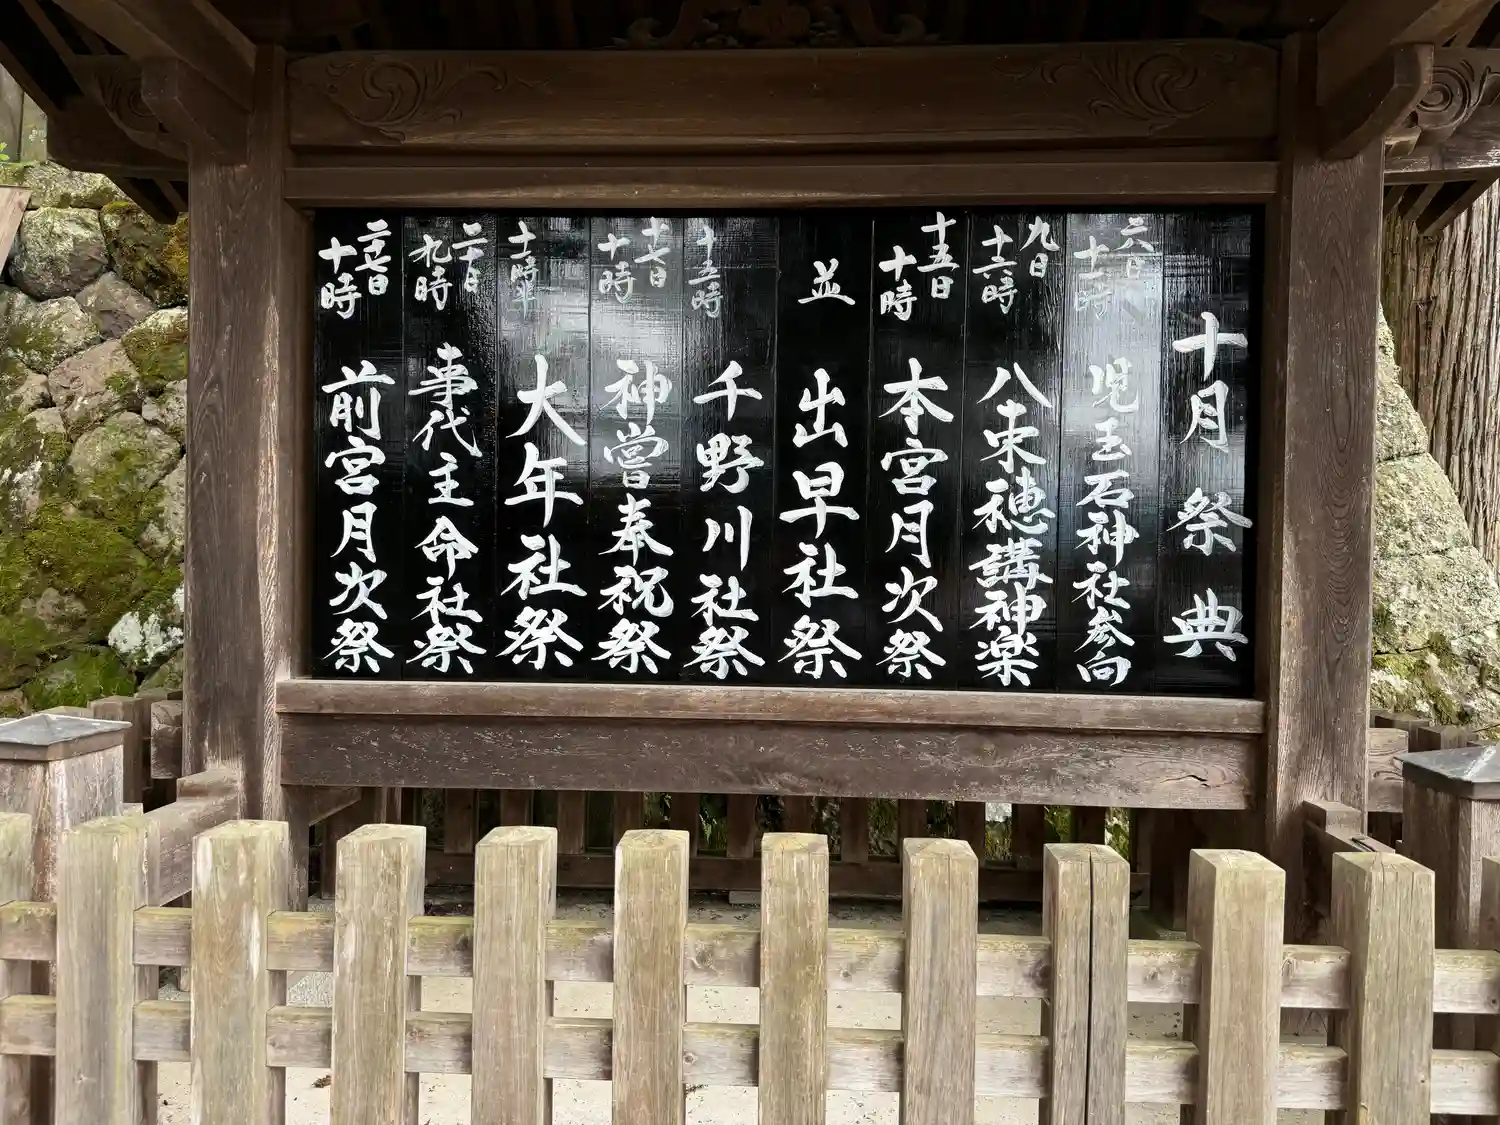 十月祭典
六日
十時
児玉石神社参向
九日
十六時
八束穂講神楽
十五日
十時
本宮月次祭
並
出早社祭
十五時
千野川社祭
十七日
十時
神嘗奉祝祭
十一時半
大年社祭
二十日
九時
事代主命社祭
十時
前宮月次祭